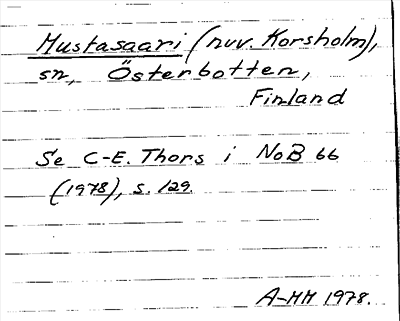 Mustasaari (nuv. Korsholm),
sn, Österbotten,
Finland
Se C-E. Thors i NoB 66
(1978), s. 129.
A-MM 1978.